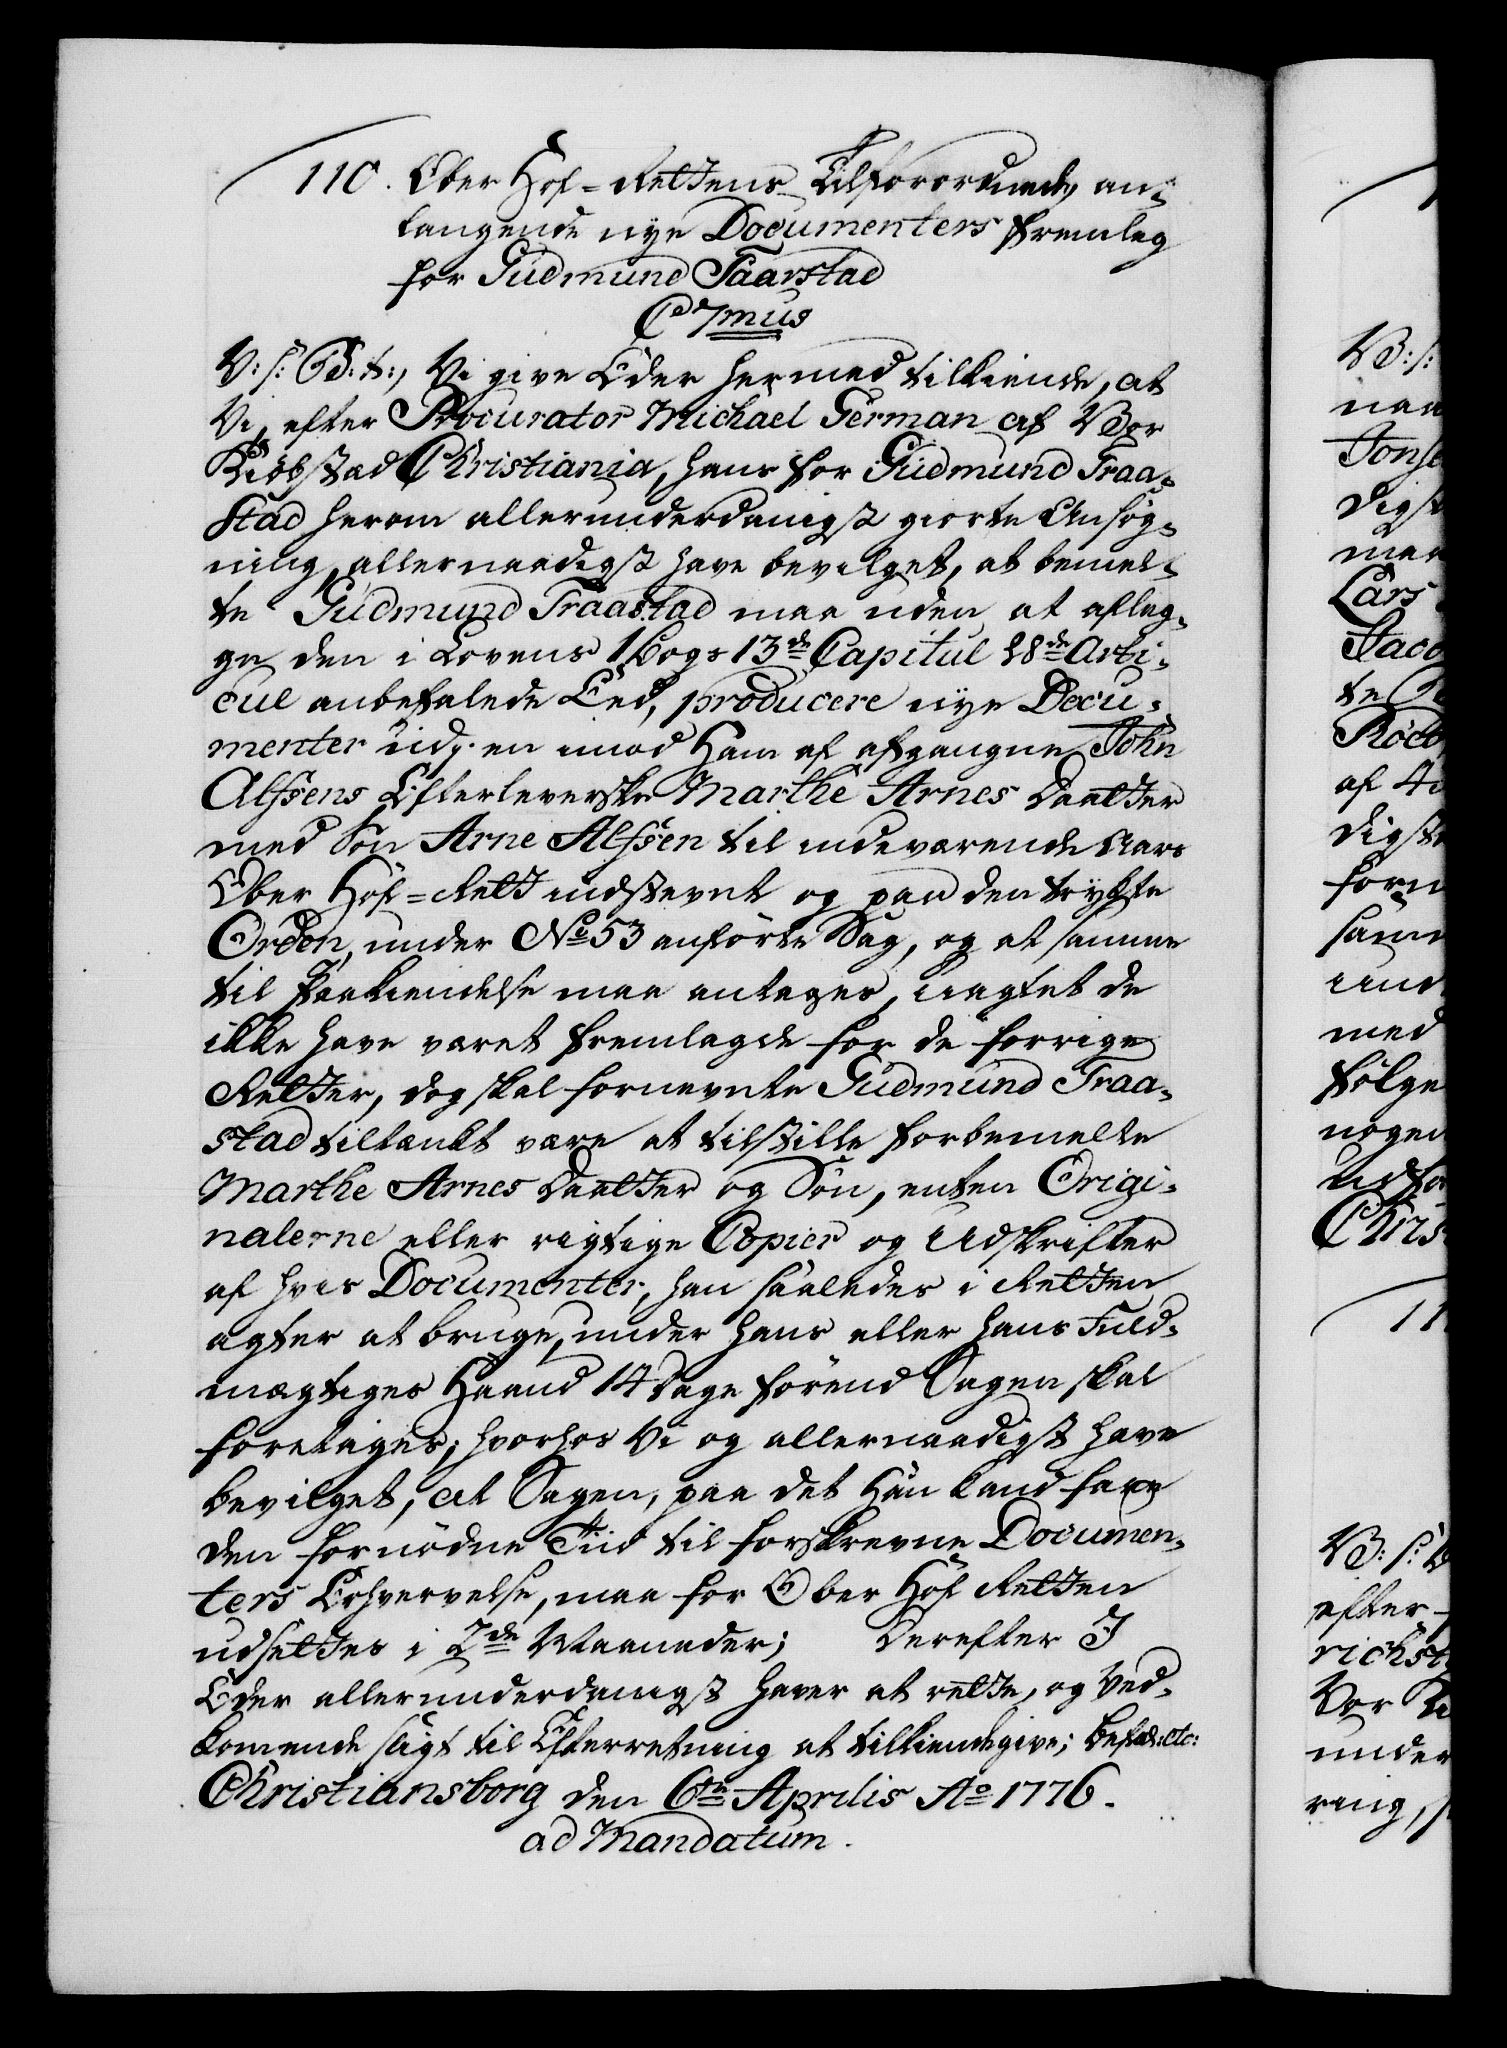 110. Ober Hof-Rettens Tilforordnede, an-
langende nye Documenters Fremleg
for Gudmund Taarstad
C 7mus
V: s: G: t:, Vi give Eder hermed tilkiende, at
Vi, efter Procurator Michael German af Vor
Kiøbstæd Christiania, hans for Gudmund Traa-
stad herom allerunderdanigst giorte Ansøg-
ning, allernaadigst have bevilget, at bemel-
te Gudmund Traastad maa uden at aflæg-
ge den i Lovens 1 Bogs 13de Capitul 28de Arti-
cul anbefalede Eed, producere nye Docu-
menter udj en imod Ham af afgangne John
Alfsens Efterleverske Marthe Arnes Daatter
med Søn Arne Alfsen til indeværende Aars
Ober Hof-Rett indstevnt og paa den trykte
Orden, under No 53 anførte Sag, og at samme
til Paakiendelse maa antages, uagtet de
ikke have været fremlagde for de forrige
Retter, dog skal fornevnte Gudmund Traa-
stad tiltænkt være at tilstille forbemelte
Marthe Arnes Daatter og Søn, enten Origi-
nalerne eller rigtige Copier og Udskrifter
af hvis Documenter, han saaledes i Retten
agter at bruge, under hans eller hans Fuld-
mægtiges Haand 14 Dage førend Sagen skal
foretages; hvorhos Vi og allernaadigst have
bevilget, at Sagen, paa det Han kand have
den fornødne Tiid til forskrevne Documen-
ters Erhvervelse, maa for Ober Hof Retten
udsettes i 2de Maaneder; Derefter I
Eder allerunderdanigst haver at rette, og Ved-
komende sligt til Efterretning at tilkiendegive; Befal: etc:
Christiansborg den 6te Aprilis Ao 1776.
ad Mandatum.